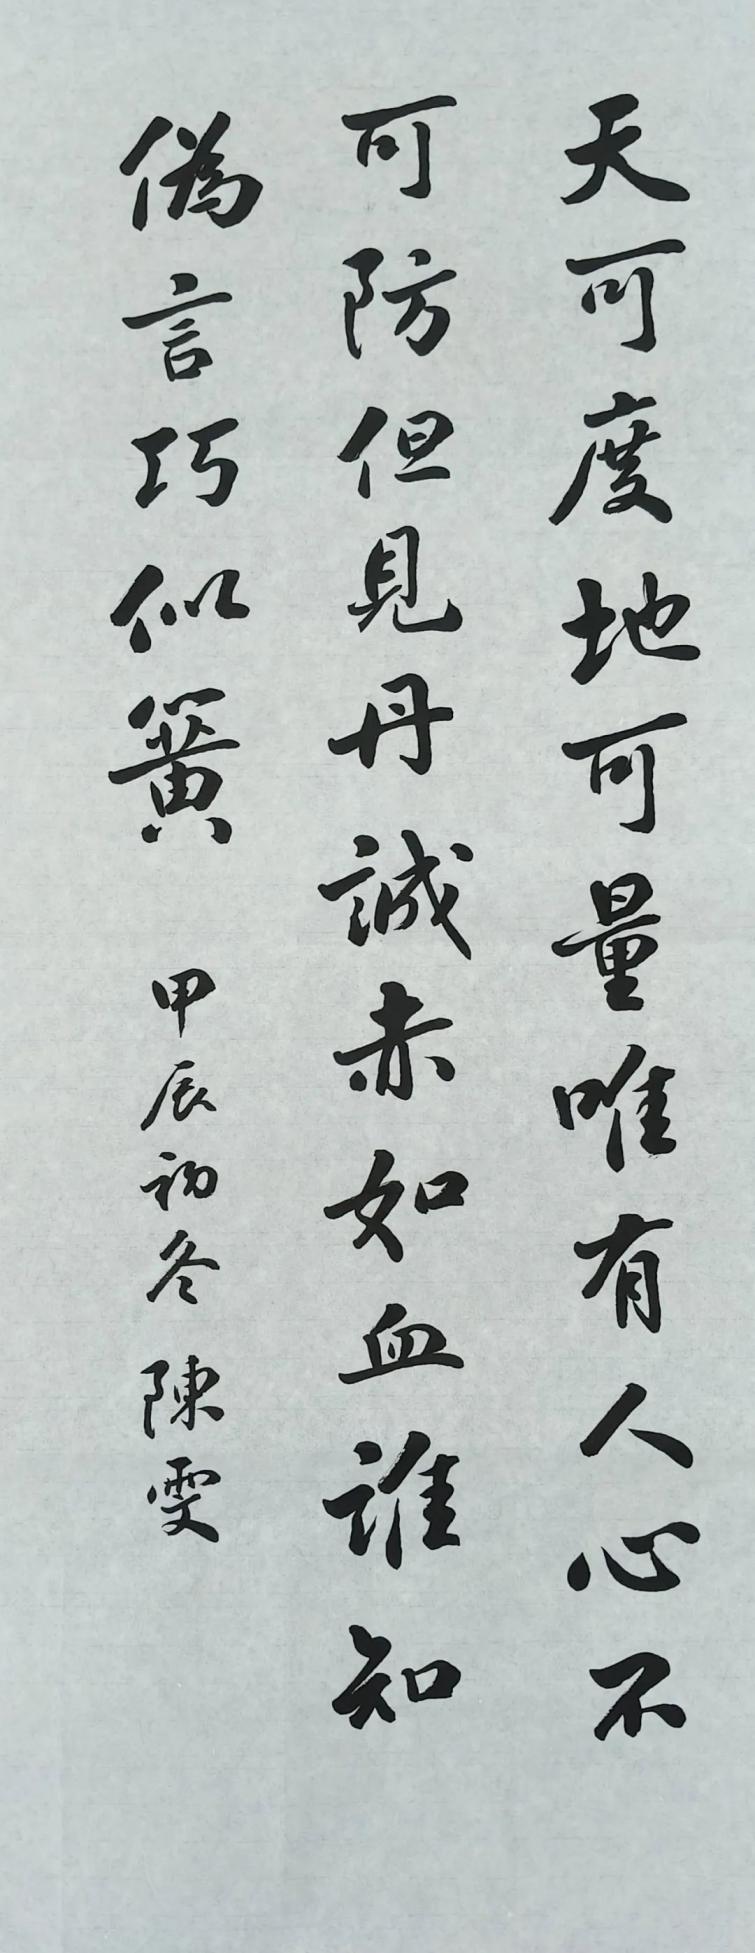 天可度地可量唯有人心不
可防但見丹誠赤如血誰知
偽言巧似簧
甲辰初冬陳雯